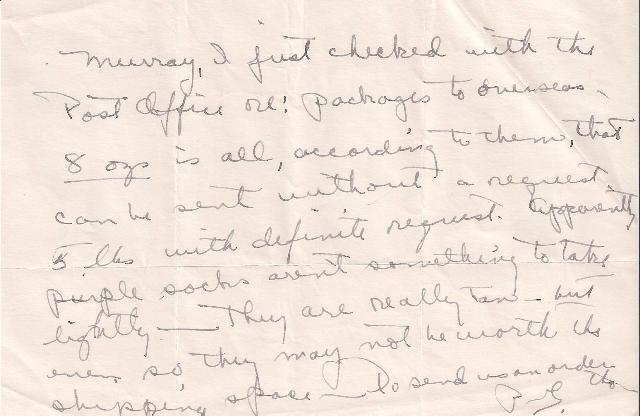 Murray, I just checked with the
Post Office re: packages to overseas -
8 ozs is all, according to them, that
can be sent without a request.
5 lbs with definite request. Apparently
purple socks aren't something to take
lightly — They are really tan - but
even so, they may not be worth the
shipping space — Do send us an order